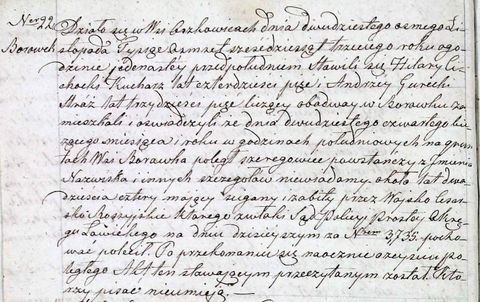 Ner 92
Borawek
Działo się w Wsi dnia dwudziestego osmego Li-
stopada Tysiąc ośmset sześcdziesąt trzeciego roku o go-
dzinie jedenastey przed południem stawili się Hilary Ci-
chocki Kucharz lat czterdzieści pięć i Andrzey Gurecki
Straż lat trzydzieści pięć liczący obadway w Borawku za-
mieszkali i oswiadczyli że dnia dwudziestego czwartego bie-
żącego miesiąca i roku w godzinach południowych na grun-
tach Wsi Borawka poległ szeregowiec powstańczy z Imienia
Nazwiska i innych szczegołów niewiadamy około lat dwa-
dzieścia cztery mający scigany i zabity przez Woysko Cesar-
sko Rossyiskie ktorego zwłoki Sąd Policyi Prostey Okrę-
gu na dniu dzisieyszym za Nrem 3,735. pocho-
wać polecił. Po przekonaniu się naocznie o zeysciu po-
ległego Akt ten stawaiącym przeczytanym został. Któ-
rzy pisać nieumieją. —